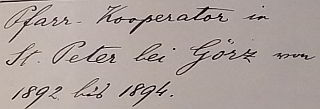 Pfarr-Kooperator in
St. Peter bei Görz von
1892 bis 1894.